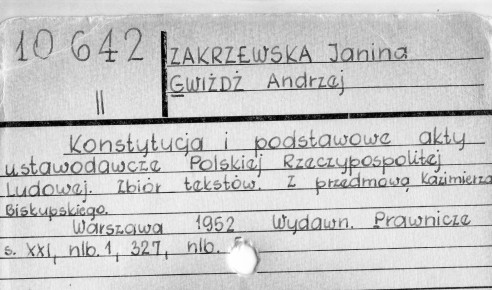 10 642
II
ZAKRZEWSKA Janina
GWIŻDŻ Andrzej
Konstytucja i podstawowe akty
ustawodawcze Polskiej Rzeczypospolitej
Ludowej. Zbiór tekstów. Z przedmową Kazimierza
Biskupskiego.
Warszawa 1952 Wydawn. Prawnicze
s. XXI, nlb. 1, 327, nlb.